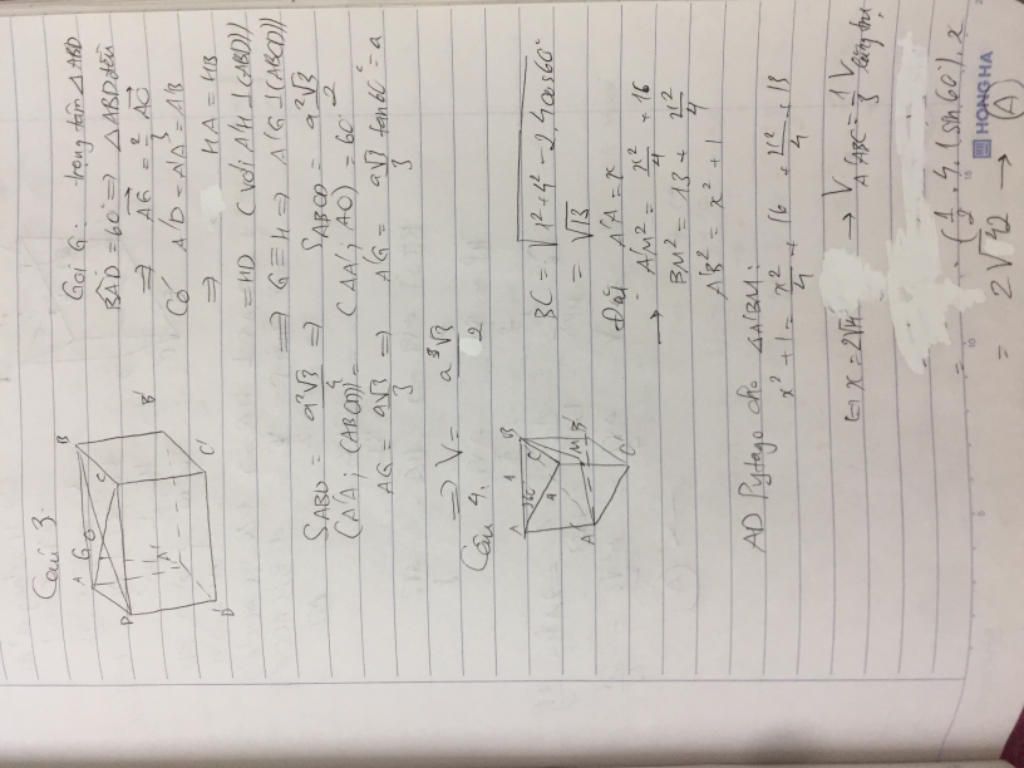 Câu 3.
A
B
G
O
C
D
A'
B'
C'
D'
Gọi G: trọng tâm ΔABD
BAD = 60° => ΔABD đều
=> AG = 2/3 AO
Có A'D = A'A = A'B
=> HA = HB
= HD (với A'H ⊥ (ABCD))
=> G ≡ H => A'G ⊥ (ABCD)
S_ABD = a²√3/4 => S_ABCD = a²√3/2
(A'A; (ABCD)) = (AA'; AO) = 60°
AG = a√3/3 => A'G = a√3/3 tan60° = a
=> V = a³√3/2
Câu 4.
A
1
B
60°
4
C
M
B'
A'
C'
BC = √1² + 4² - 2.4cos60°
= √13
Đặt A'A = x
→ A'M² = x²/4 + 16
BM² = 13 + x²/4
A'B² = x² + 1
AD Pytago cho ΔA'BM:
x² + 1 = x²/4 + 16 + x²/4 + 13
<=> x = 2√14 → V_A'ABC = 1/3 V lăng trụ
= (1/2 . 4 . (sin 60)) . x
= 2√42 → (A)
HONG HA